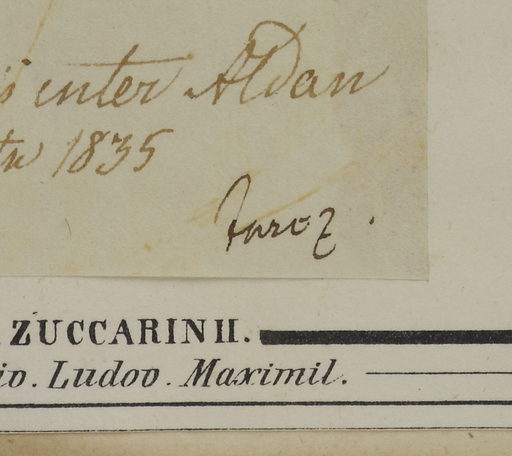 inter Aldan
1835
Turcz.
ZUCCARINII.
iv. Ludov. Maximil.